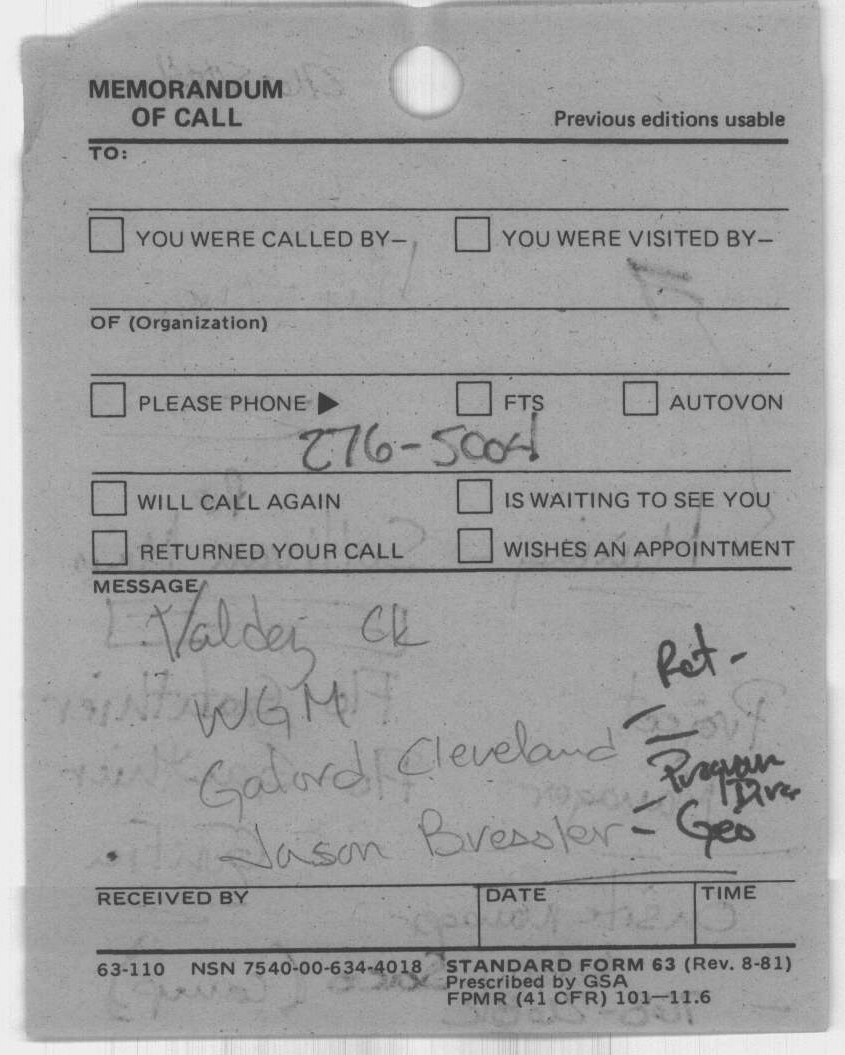 MEMORANDUM
OF CALL
Previous editions usable
TO:
YOU WERE CALLED BY–
YOU WERE VISITED BY–
OF (Organization)
PLEASE PHONE ▶
FTS
AUTOVON
276-5004
WILL CALL AGAIN
IS WAITING TO SEE YOU
RETURNED YOUR CALL
WISHES AN APPOINTMENT
MESSAGE
Valdez CK
Ret -
WGM
Galord Cleveland
Program
Dir.
Jason Bressler - Geo
RECEIVED BY
DATE
TIME
63-110 NSN 7540-00-634-4018 STANDARD FORM 63 (Rev. 8-81)
Prescribed by GSA
FPMR (41 CFR) 101—11.6